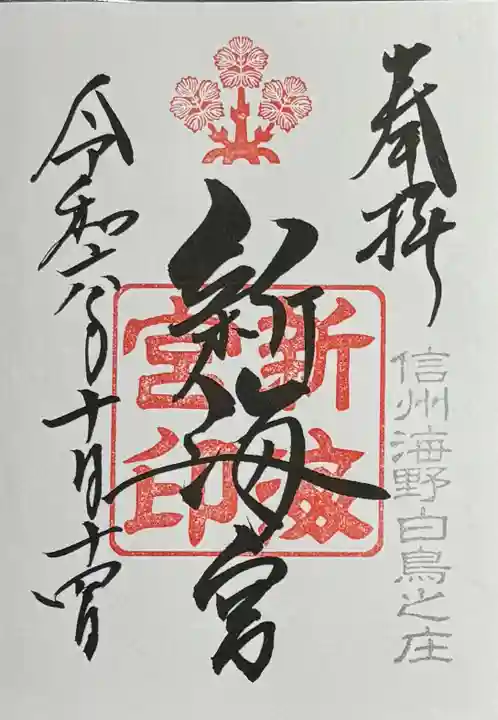 奉拝
信州海野白鳥之庄
新海宮
新海
宮印
令和六年十月十四日